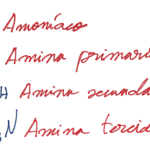 Amoníaco
Amina primari
H Amina secunda
N Amina tercia